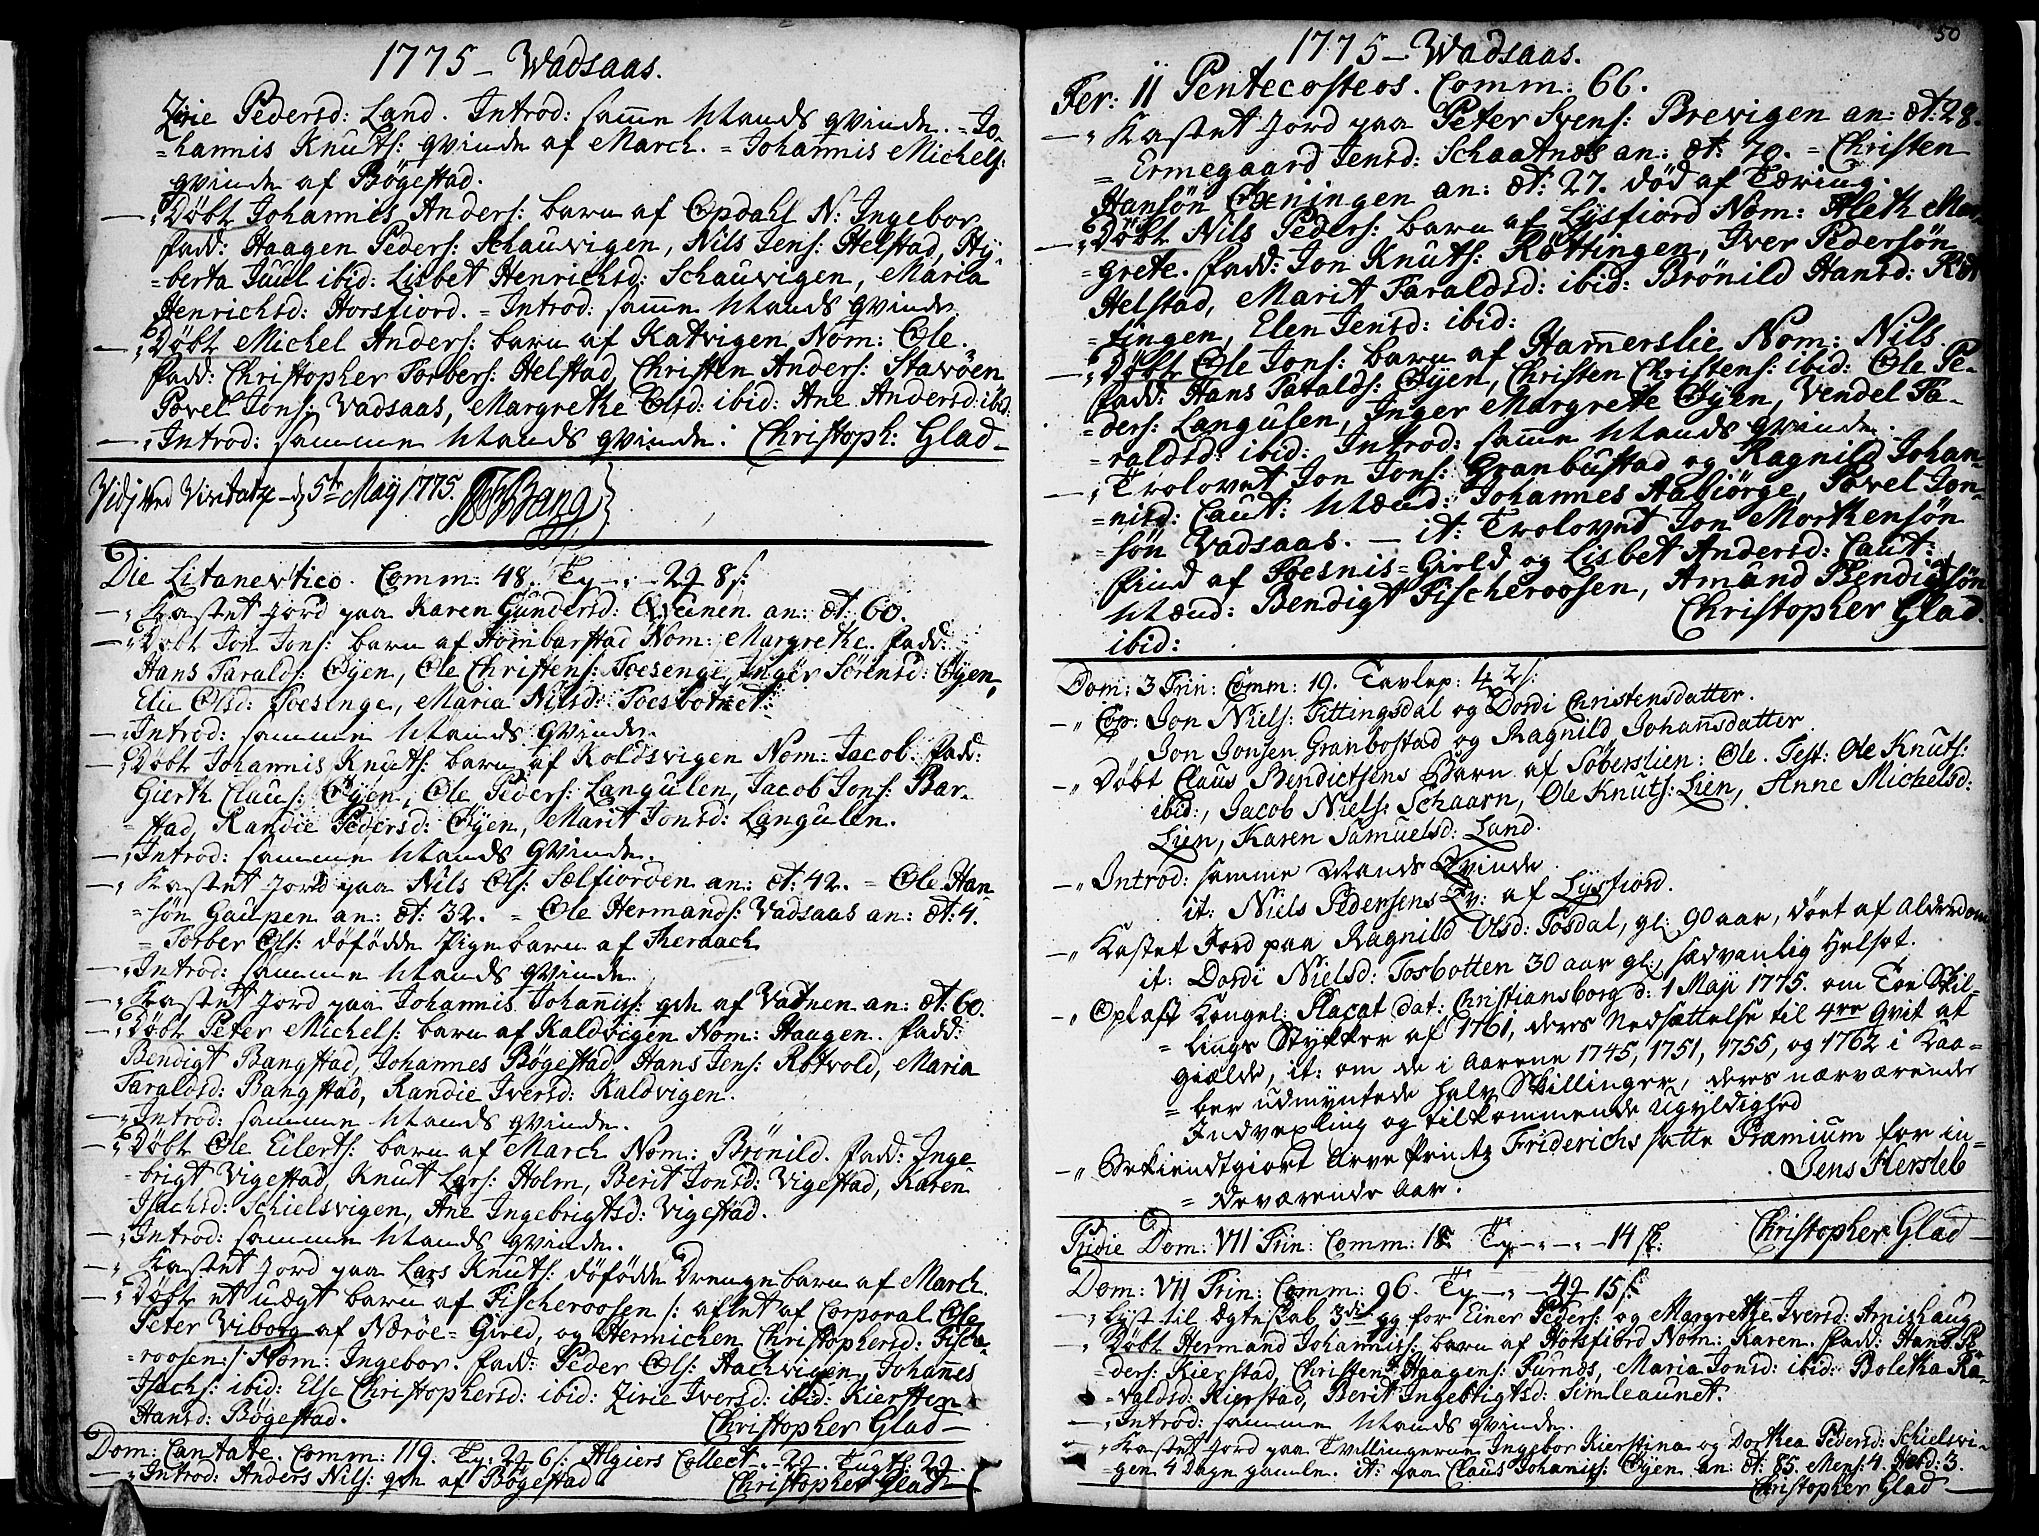 1775 – Wadsaas.
Zirie Pedersd: Land. Introd: samme Mands qvinde. = Jo-
=hannis Knuts: qvinde af March. = Johannis Michels:
qvinde af Bögestad.
— „ Döbt Johannis Anders: barn af Opdahl N: Ingebor
fadd: Haagen Peders: Schauvigen, Nils Jens: Helstad, Hÿ-
=berta Juul ibid: Lisbet Henrichsd: Schauvigen, Maria
Henrichsd: Horsfiord. = Introd: samme Mands qvinde
— „ Döbt Michel Anders: barn af Katvigen Nom: Ole.
fadd: Christopher Torbers: Helstad, Christen Anders: Stavöen
Povel Jons: Vadsaas, Margrethe Olsd: ibid: Ane Andersd: ibid:
— „ Introd: samme Mands qvinde. Christoph: Glad —
Vidj ved Visitatz d 5te Maÿ 1775. Bang
Die Litanevtico. Comm: 48. Ty — 8 s:
— „ Kastet Jord paa Karen Gundersd: Qveinen an: æt: 60.
— „ Döbt Jon Jons: barn af Hombarstad Nom: Margrethe. fadd:
Hans Taralds: Öÿen, Ole Christens: Toesenge, Inger Sörensd: Öÿen,
Elie Olsd: Toesenge, Maria Nilsd: Toesbotnet:
— „ Introd: samme Mands qvinde.
— „ Döbt Johannis Knuts: barn af Koldsvigen Nom: Jacob. fadd:
Gierth Claus: Öÿen, Ole Peders: Langulen, Jacob Jons: Bar-
=stad, Randie Pedersd: Öÿen, Marit Jonsd: Langulen.
— „ Introd: samme Mands qvinde.
— „ Kastet Jord paa Nils Ols: Sælfiorden an: æt: 42. = Ole Han-
=sön Gaupen an: æt: 32. = Ole Hermands: Vadsaas an: æt: 4.
= Torber Ols: döfödde Pigebarn af Theraach
— „ Introd: samme Mands qvinde.
— „ Kastet Jord paa Johannis Johannis: qde af Vatnen an: æt: 60.
— „ Döbt Peter Michels: barn af Kaldvigen Nom: Haagen. fadd:
Bendigt Bangstad, Johannes Bögestad Hans Jens: Rotvold, Maria
Taraldsd: Bangstad, Randie Iversd: Kaldvigen.
— „ Introd: samme Mands qvinde.
— „ Döbt Ole Eilerts: barn af March Nom: Brönild. fadd: Inge-
=brigt Vigestad, Knut Lars: Holm, Berit Jonsd: Vigestad, Karen
Isachsd: Schielsvigen, Ane Ingebrigtsd: Vigestad.
— „ Introd: samme Mands qvinde.
— „ Kastet Jord paa Lars Knuts: döfödde Drengebarn af March.
— „ Döbt et uægt barn af Fischeroosen /: aflet af Corporal Ole
Peter Viborg af Næröe = Gield, og Hermichen Christophersd: Fische-
=roosen :/ Nom: Ingebor. fadd: Peder Ols: Aachvigen, Johannes
Isachs: ibid: Else Christophersd: ibid: Zirie Iversd: ibid: Kiersten
Hansd: Bögestad. Christopher Glad —
Dom: Cantate. Comm: 119. Ty: 6 s: Algiers Collect. Tugth.
— „ Introd: Anders Nils: qde af Bögestad Christopher Glad —
50
1775 – Wadsaas.
Fer: II Pentecosteos. Comm: 66.
— „ Kastet Jord paa Peter Svens: Brevigen an: æt: 28.
= Ermegaard Jensd: Schaatnes an: æt: 70. = Christen
Hansön Oxningen an: æt: 27. död af Tæring.
— „ Döbt Nils Peders: barn af Lysfiord Nom: Aleth Mar-
=grete. fadd: Jon Knuts: Röttingen, Iver Pedersön
Helstad, Marit Taraldsd: ibid: Brönild Hansd: Röt-
=tingen, Elen Jensd: ibid:
— „ Döbt Ole Jons: barn af Hammerslie Nom: Nils.
fadd: Hans Taralds: Öÿen, Christen Christens: ibid: Ole Pe-
=ders: Langulen, Inger Margrete Öÿen, Vendel Ta-
=raldsd: ibid: Introd: samme Mands qvinde.
— „ Trolovet Jon Jons: Granbustad og Ragnild Johan-
=nisd: Caut: Mænd: Johannes Aabiörge, Povel Jon-
=sön Vadsaas. — it: Trolovet Jon Mortensön
fiind af Foesnis = Gield og Lisbet Andersd: Caut:
Mænd: Bendigt Fischeroosen, Amund Bendigtsön
ibid: Christopher Glad.
Dom: 3 Trin: Comm: 19. Tavlep: 4 2 s:
— „ Cop: Jon Niels: Fittingsdal og Dordi Christensdatter.
Jon Jonsen Granbostad og Ragnild Johannsdatter
— „ Döbt Claus Bendictsens Barn af Söberslien: Ole. Test: Ole Knuts:
ibid:, Jacob Niels: Schaarn, Ole Knuts: Lien, Anne Michelsd:
Lien, Karen Samuelsd: Land.
— „ Introd: samme Mands Qvinde
it: Niels Pedersens Qv: af Lysfiord.
— „ Kastet Jord paa Ragnild Olsd: Tosdal, gl: 90 aar, döet af Alderdom
it: Dordi Nielsd: Tosbotten 30 aar gl:, sædvanlig Helsot.
— „ Oplæst Kongel: Placat dat: Christiansborg d: 1 Maji 1775. om Toe Skil-
=lings Stykker af 1761, deres Nedsættelse til 4re Hvit at
gielde, it: om de i Aarene 1745, 1751, 1755, og 1762 i Kaa-
=ber udmyntede halv Skillinger, deres nærværende
Indvexling og tilkommende Ugyldighed
— „ Bekiendtgiort Arve Printz Friderichs satte Præmium for in-
=deværende Aar. Jens Hersleb
Pridie Dom: VII Trin: Comm: 18. Ty — „ — 14 sk: Christopher Glad —
Dom: VII Trin: Comm: 96. Ty — „ — 15 s:
— „ Lyst til Ægteskab 3die gg for Einer Peders: og Margrethe Iversd: Arnishaug
— „ Döbt Hermand Johannis: barn af Horsfiord Nom: Karen. fadd: Hans Pe-
=ders: Kierstad, Christen Haagens: Furnes, Maria Jonsd: ibid: Boletha Ra-
=valdsd: Kierstad, Berit Ingebrigtsd: Simleaunet.
— „ Introd: samme Mands qvinde.
— „ Kastet Jord paa Tvillingerne Ingebor Kierstina og Dorthea Pedersd: Schielsvi-
=gen 4 Dage gamle. it: paa Claus Johannis: Öÿen an: æt: 85. Mens: 4. Hebd: 3.
Christopher Glad —